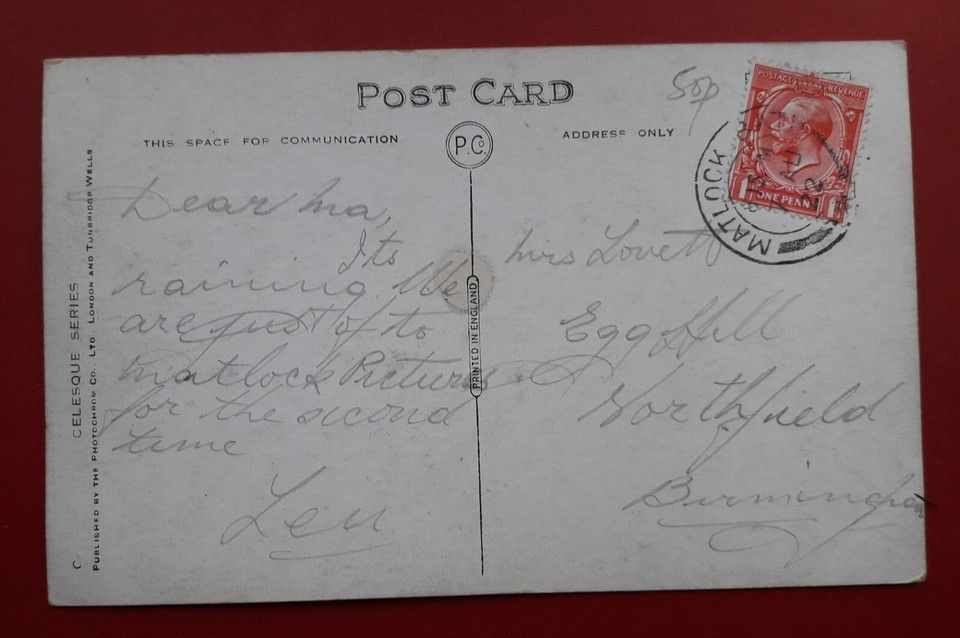 POST CARD
50p
THIS SPACE FOR COMMUNICATION
P.Co.
ADDRESS ONLY
POSTAGE REVENUE
ONE PENNY
1 1
MATLOCK
Dear Ma,
Its
raining. We
are just of to
Matlock Pictures
for the second
time
Len
Mrs Lovett
Egg Hill
Northfield
Birmingham
PRINTED IN ENGLAND
CELESQUE SERIES
PUBLISHED BY THE PHOTOCHROM CO. LTD. LONDON AND TUNBRIDGE WELLS
C